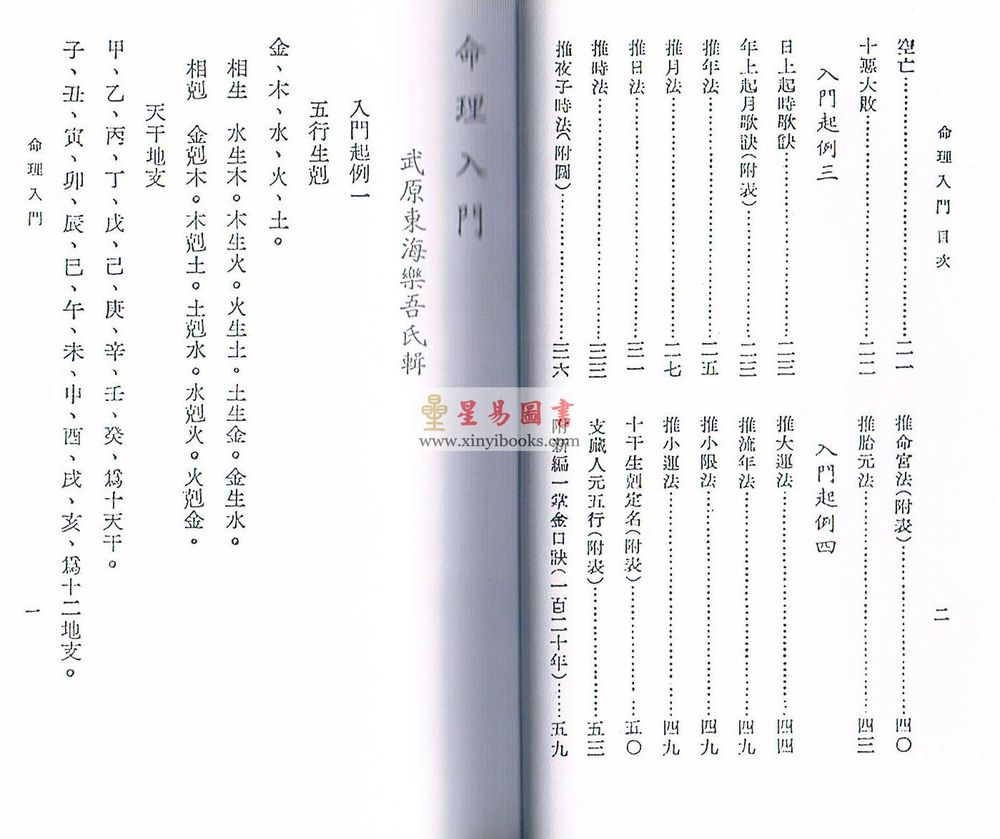 命理入門目次
二
空亡……二一
十惡大敗……二二
入門起例三
日上起時歌訣……二三
年上起月歌訣(附表)……二三
推年法……二五
推月法……二七
推日法……三一
推時法……三三
推夜子時法(附圖)……三六
推命宮法(附表)……四〇
推胎元法……四三
入門起例四
推大運法……四四
推流年法……四九
推小限法……四九
推小運法……四九
十干生剋定名(附表)……五〇
支藏人元五行(附表)……五三
附新編一掌金口訣(一百二十年)……五九
命理入門
武原東海樂吾氏輯
入門起例一
五行生剋
金、木、水、火、土。
相生 水生木。木生火。火生土。土生金。金生水。
相剋 金剋木。木剋土。土剋水。水剋火。火剋金。
天干地支
甲、乙、丙、丁、戊、己、庚、辛、壬、癸、爲十天干。
子、丑、寅、卯、辰、巳、午、未、申、酉、戌、亥、爲十二地支。
命理入門
一
星易圖書
www.xinyibooks.com